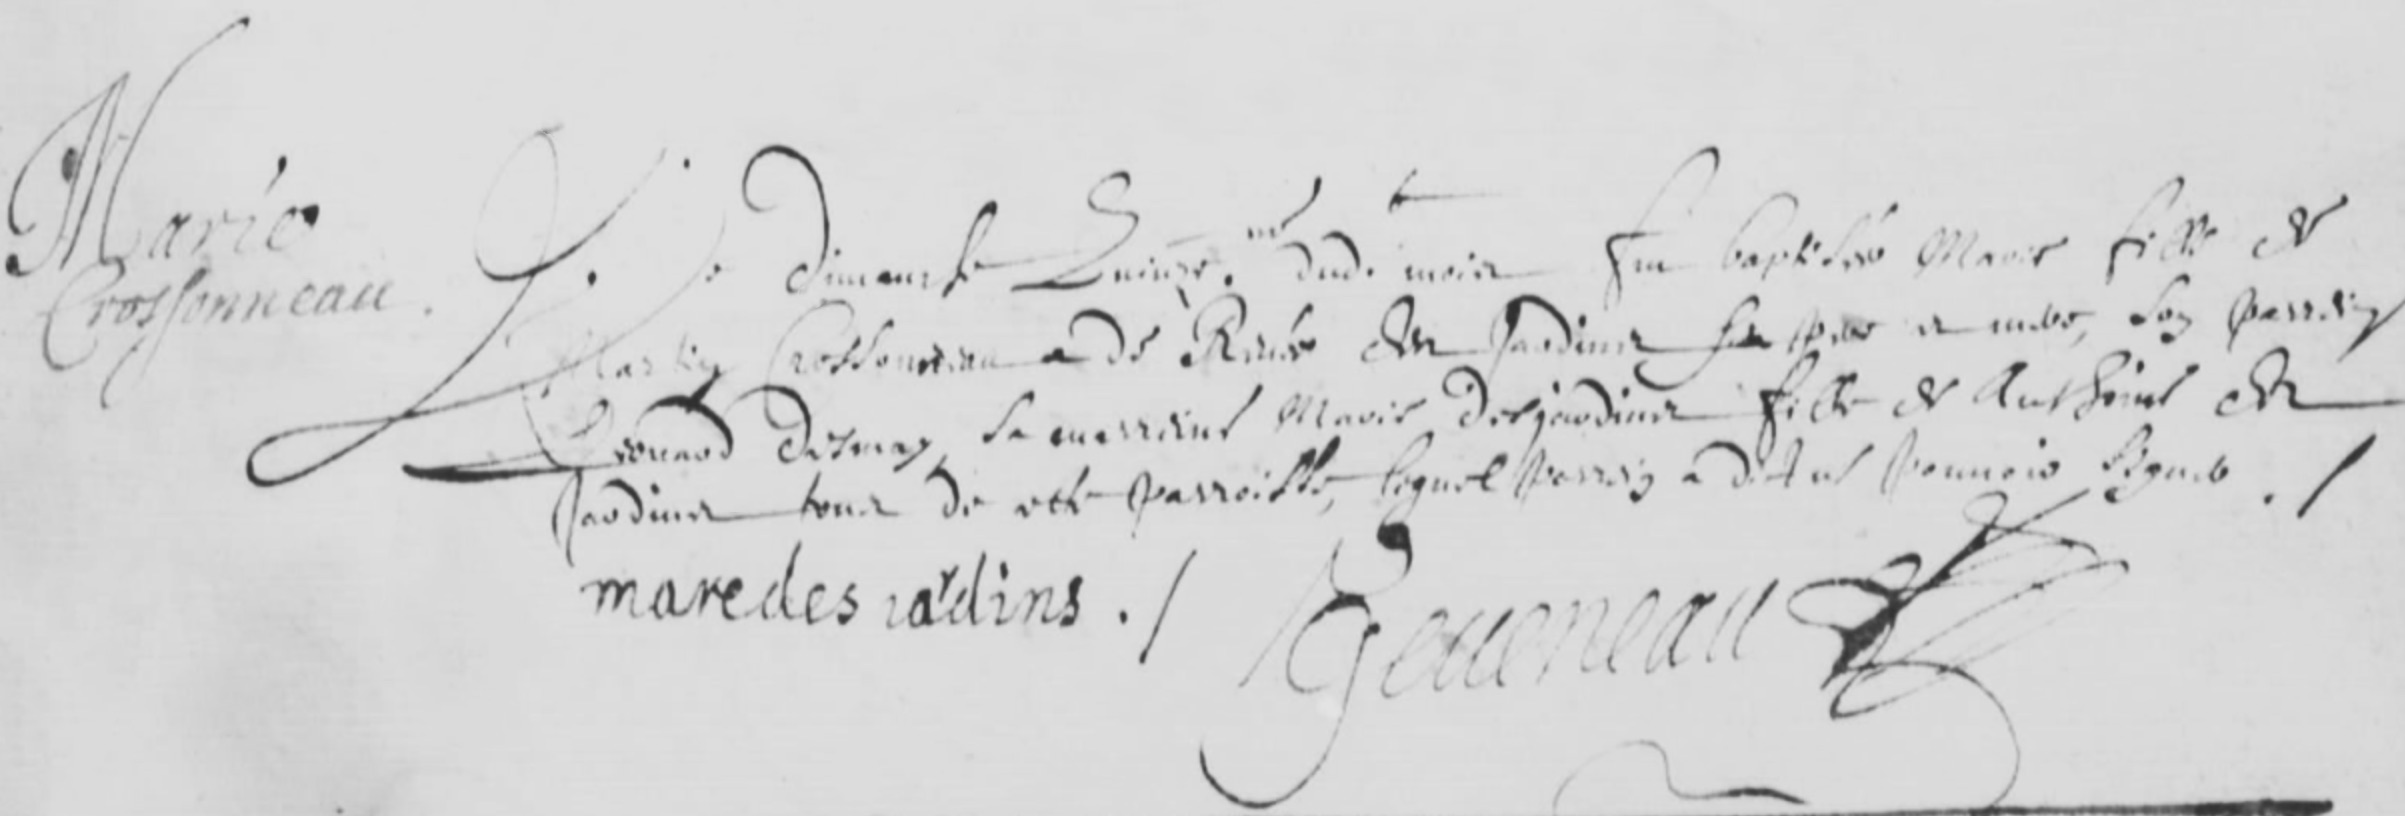 Marie
Crossonneau.
Le dimanche Quinze.me dud. mois fut baptisée Marie fille de
Martin Crossonneau & de Renée des Jardins ses pere et mere, son parrein
Leonard, sa marreine Marie Desjardins fille de Anthoine des
Jardins tous de cette parroisse, lequel parrein a dit ne pouvoir signer ./
mare des iardins ./